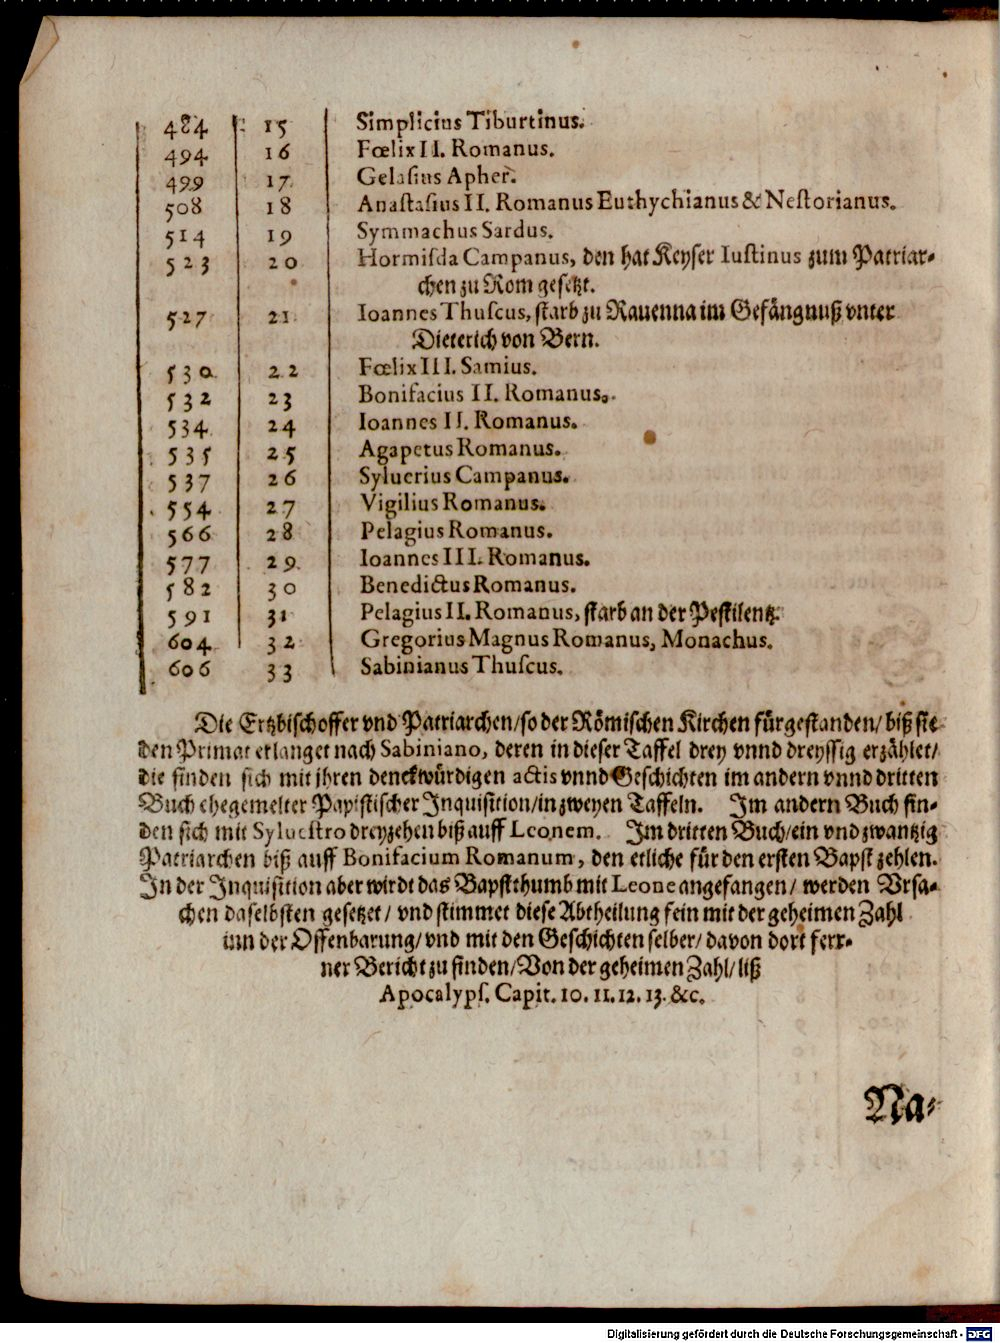 484 15 Simplicius Tiburtinus.
494 16 Fœlix II. Romanus.
499 17 Gelasius Apher.
508 18 Anastasius II. Romanus Euthychianus & Nestorianus.
514 19 Symmachus Sardus.
523 20 Hormisda Campanus, den hat Keyser Iustinus zum Patriar-
chen zu Rom gesetzt.
527 21 Ioannes Thuscus, starb zu Rauenna im Gefängnuß vnter
Dieterich von Bern.
530 22 Fœlix III. Samius.
532 23 Bonifacius II. Romanus.
534 24 Ioannes II. Romanus.
535 25 Agapetus Romanus.
537 26 Syluerius Campanus.
554 27 Vigilius Romanus.
566 28 Pelagius Romanus.
577 29 Ioannes III. Romanus.
582 30 Benedictus Romanus.
591 31 Pelagius II. Romanus, starb an der Pestilentz.
604 32 Gregorius Magnus Romanus, Monachus.
606 33 Sabinianus Thuscus.
Die Ertzbischoffer vnd Patriarchen/so der Römischen Kirchen fürgestanden/ biß sie
den Primat erlanget nach Sabiniano, deren in dieser Taffel drey vnnd dreyssig erzählet/
die finden sich mit jhren denckwürdigen actis vnnd Geschichten im andern vnnd dritten
Buch ehegemelter Papistischer Inquisition/in zweyen Taffeln. Im andern Buch fin-
den sich mit Syluestro dreyzehen biß auff Leonem. Im dritten Buch/ein vnd zwantzig
Patriarchen biß auff Bonifacium Romanum, den etliche für den ersten Bapst zehlen.
In der Inquisition aber wirdt das Bapstthumb mit Leone angefangen/ werden Vrsa-
chen daselbsten gesetzet/ vnd stimmet diese Abtheilung fein mit der geheimen Zahl
inn der Offenbarung/ vnd mit den Geschichten selber/ davon dort ferr-
ner Bericht zu finden/Von der geheimen Zahl/ liß
Apocalyps. Capit. 10. 11. 12. 13. &c.
Na-
Digitalisierung gefördert durch die Deutsche Forschungsgemeinschaft - DFG